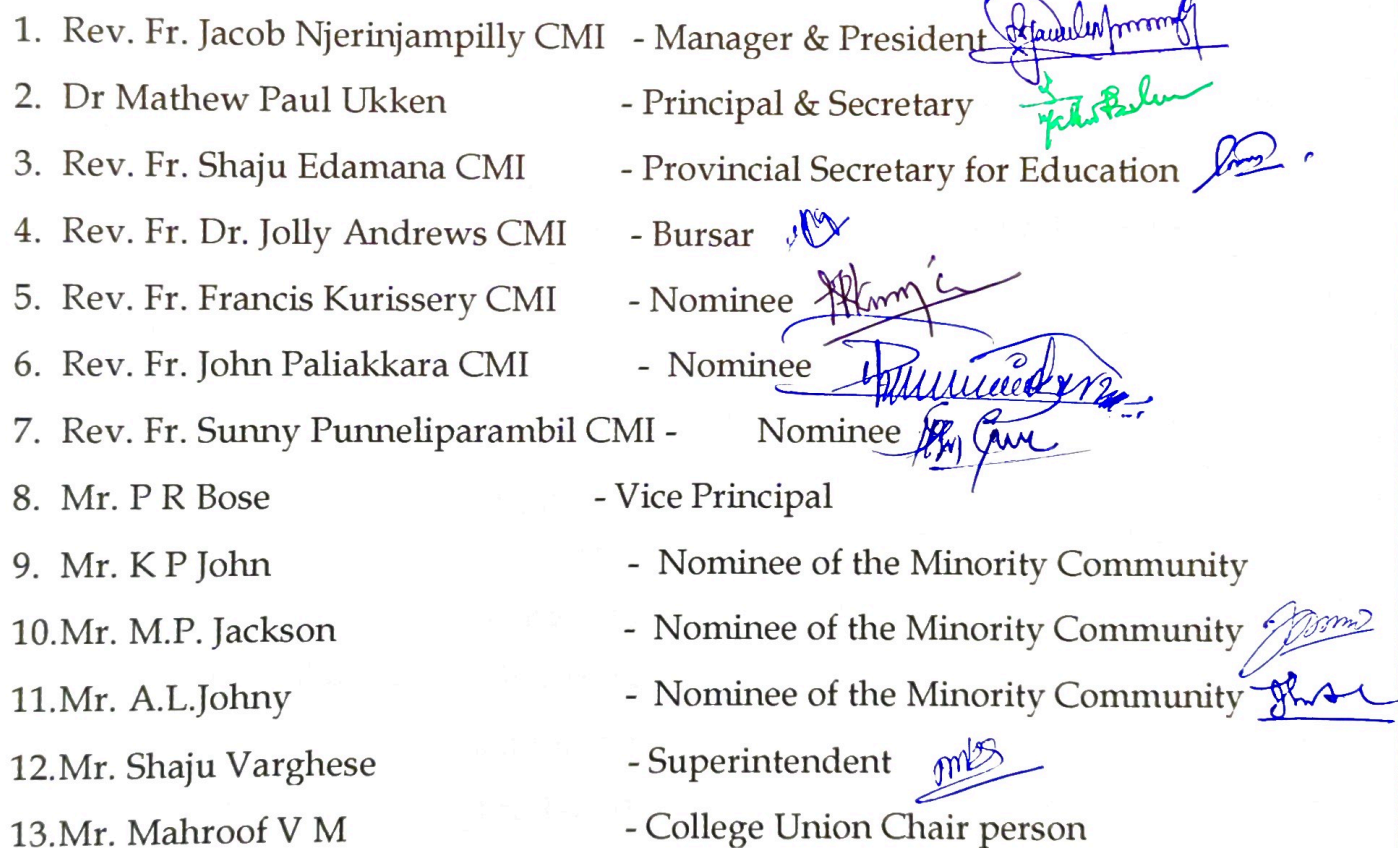 1. Rev. Fr. Jacob Njerinjampilly CMI - Manager & President
2. Dr Mathew Paul Ukken - Principal & Secretary
3. Rev. Fr. Shaju Edamana CMI - Provincial Secretary for Education
4. Rev. Fr. Dr. Jolly Andrews CMI - Bursar
5. Rev. Fr. Francis Kurissery CMI - Nominee
6. Rev. Fr. John Paliakkara CMI - Nominee
7. Rev. Fr. Sunny Punneliparambil CMI - Nominee
8. Mr. P R Bose - Vice Principal
9. Mr. K P John - Nominee of the Minority Community
10.Mr. M.P. Jackson - Nominee of the Minority Community
11.Mr. A.L.Johny - Nominee of the Minority Community
12.Mr. Shaju Varghese - Superintendent
13.Mr. Mahroof V M - College Union Chair person